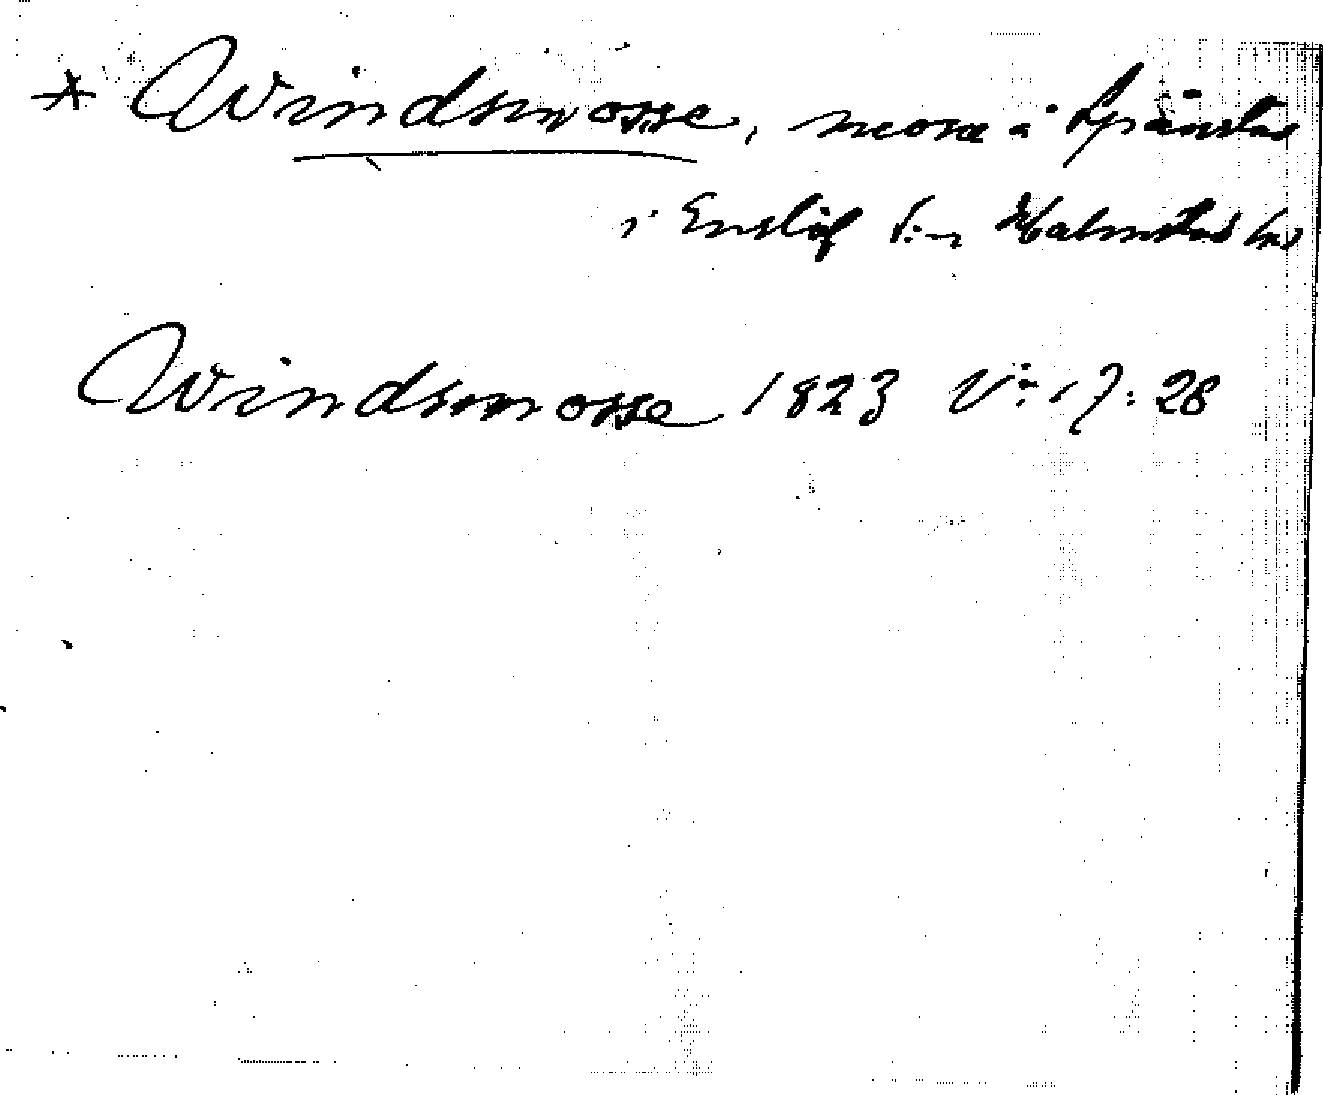 * Windsmosse, mosse å Spränstad
i Enslöf s:n Halmstad hd
Windsmosse 1823 V:17:28